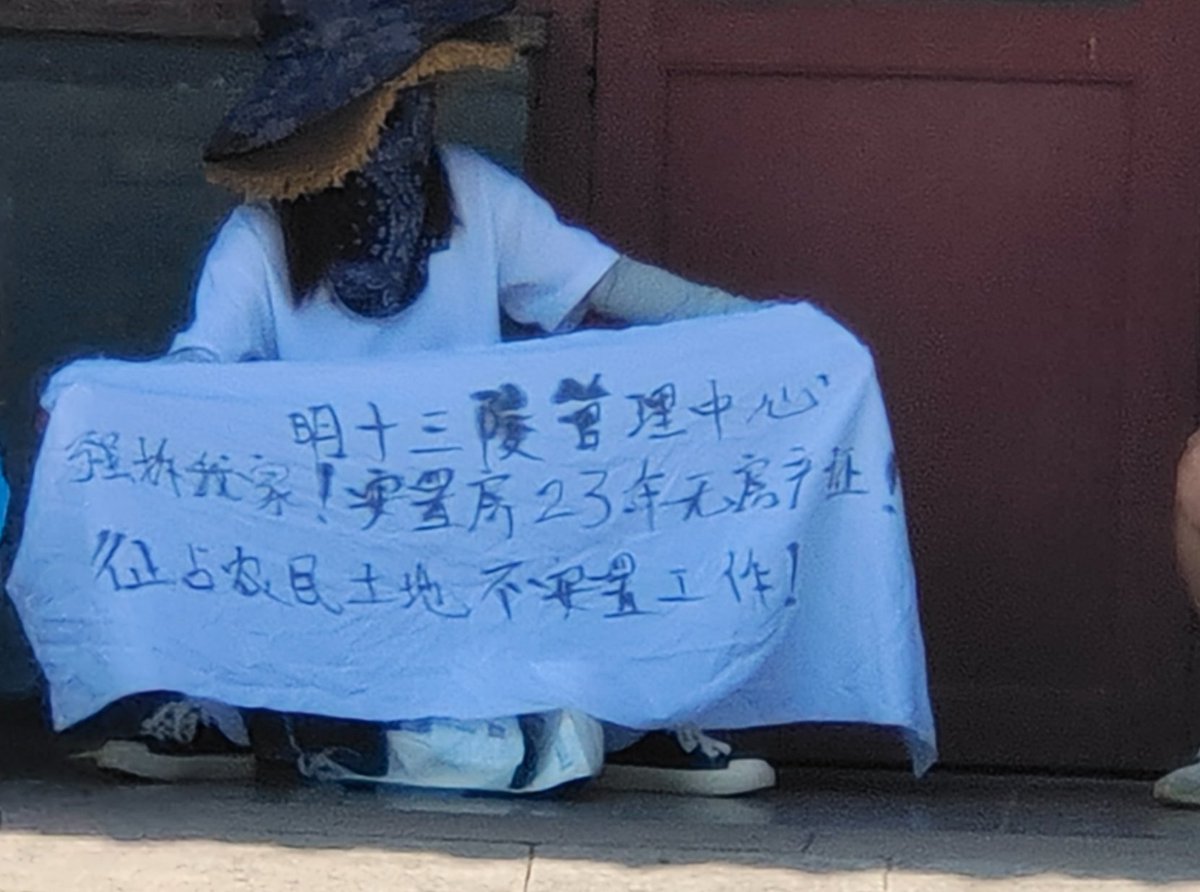 明十三陵管理中心
强拆我家！安置房23年无房产证！
征占农民土地不安置工作！